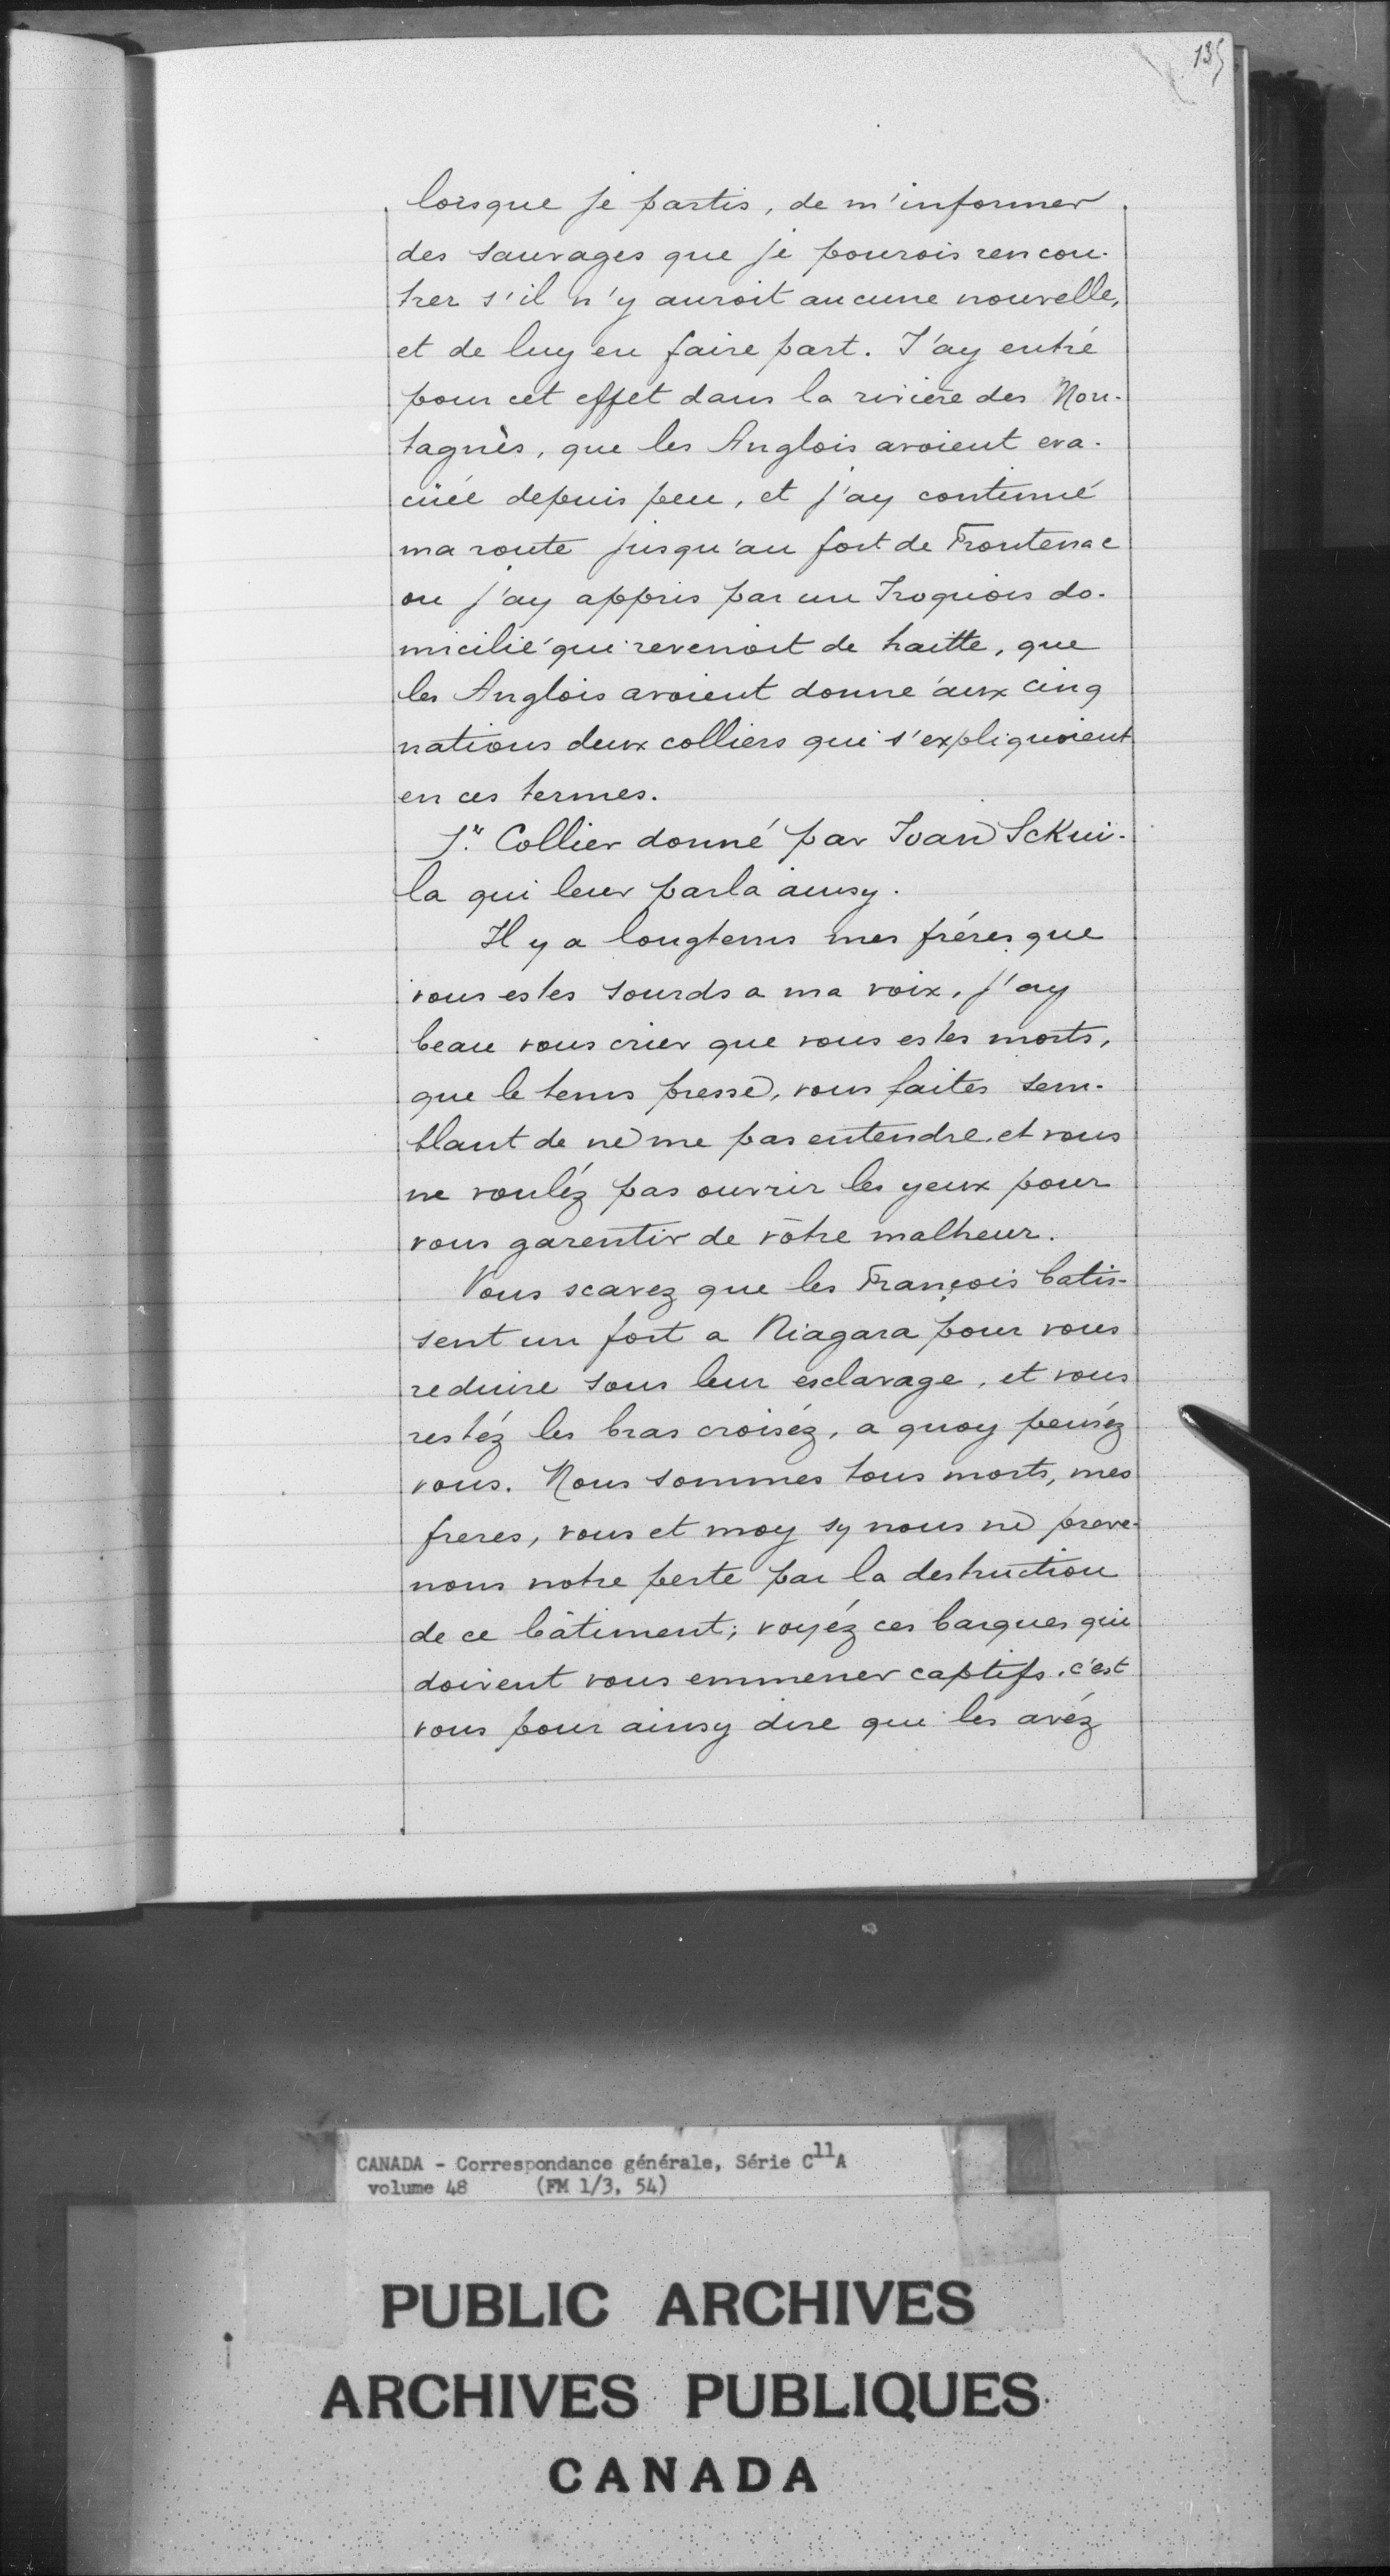 135
lorsque je partis, de m'informer
des sauvages que je pourois rencon-
trer s'il n'y auroit aucune nouvelle,
et de luy en faire part. J'ay entré
pour cet effet dans la rivière des Non-
tagnès, que les Anglois avoient eva-
cüée depuis peu, et j'ay continué
ma route jusqu'au fort de Frontenac
ou j'ay appris par un Iroquois do-
micilié qui revenoit de haitte, que
les Anglois avoient donné aux cinq
nations deux colliers qui s'expliquoient
en ces termes.
1.er Collier donné par Ivan Sckui-
la qui leur parla ainsy.
Il y a longtems mes fréres que
vous estes sourds a ma voix, j'ay
beau vous crier que vous estes morts,
que le tems presse, vous faites sem-
blant de ne me pas entendre, et vous
ne vouléz pas ouvrir les yeux pour
vous garentir de vôtre malheur.
Vous scavez que les François batis-
sent un fort a Niagara pour vous
reduire sous leur esclavage, et vous
restéz les bras croiséz, a quoy penséz
vous. Nous sommes tous morts, mes
freres, vous et moy sy nous ne preve-
nous notre perte par la destruction
de ce bâtiment; voyéz ces barques qui
doivent vous emmener captifs, c'est
vous pour ainsy dire qui les avéz
CANADA - Correspondance générale, Série C11A
volume 48 (FM 1/3, 54)
PUBLIC ARCHIVES
ARCHIVES PUBLIQUES
CANADA